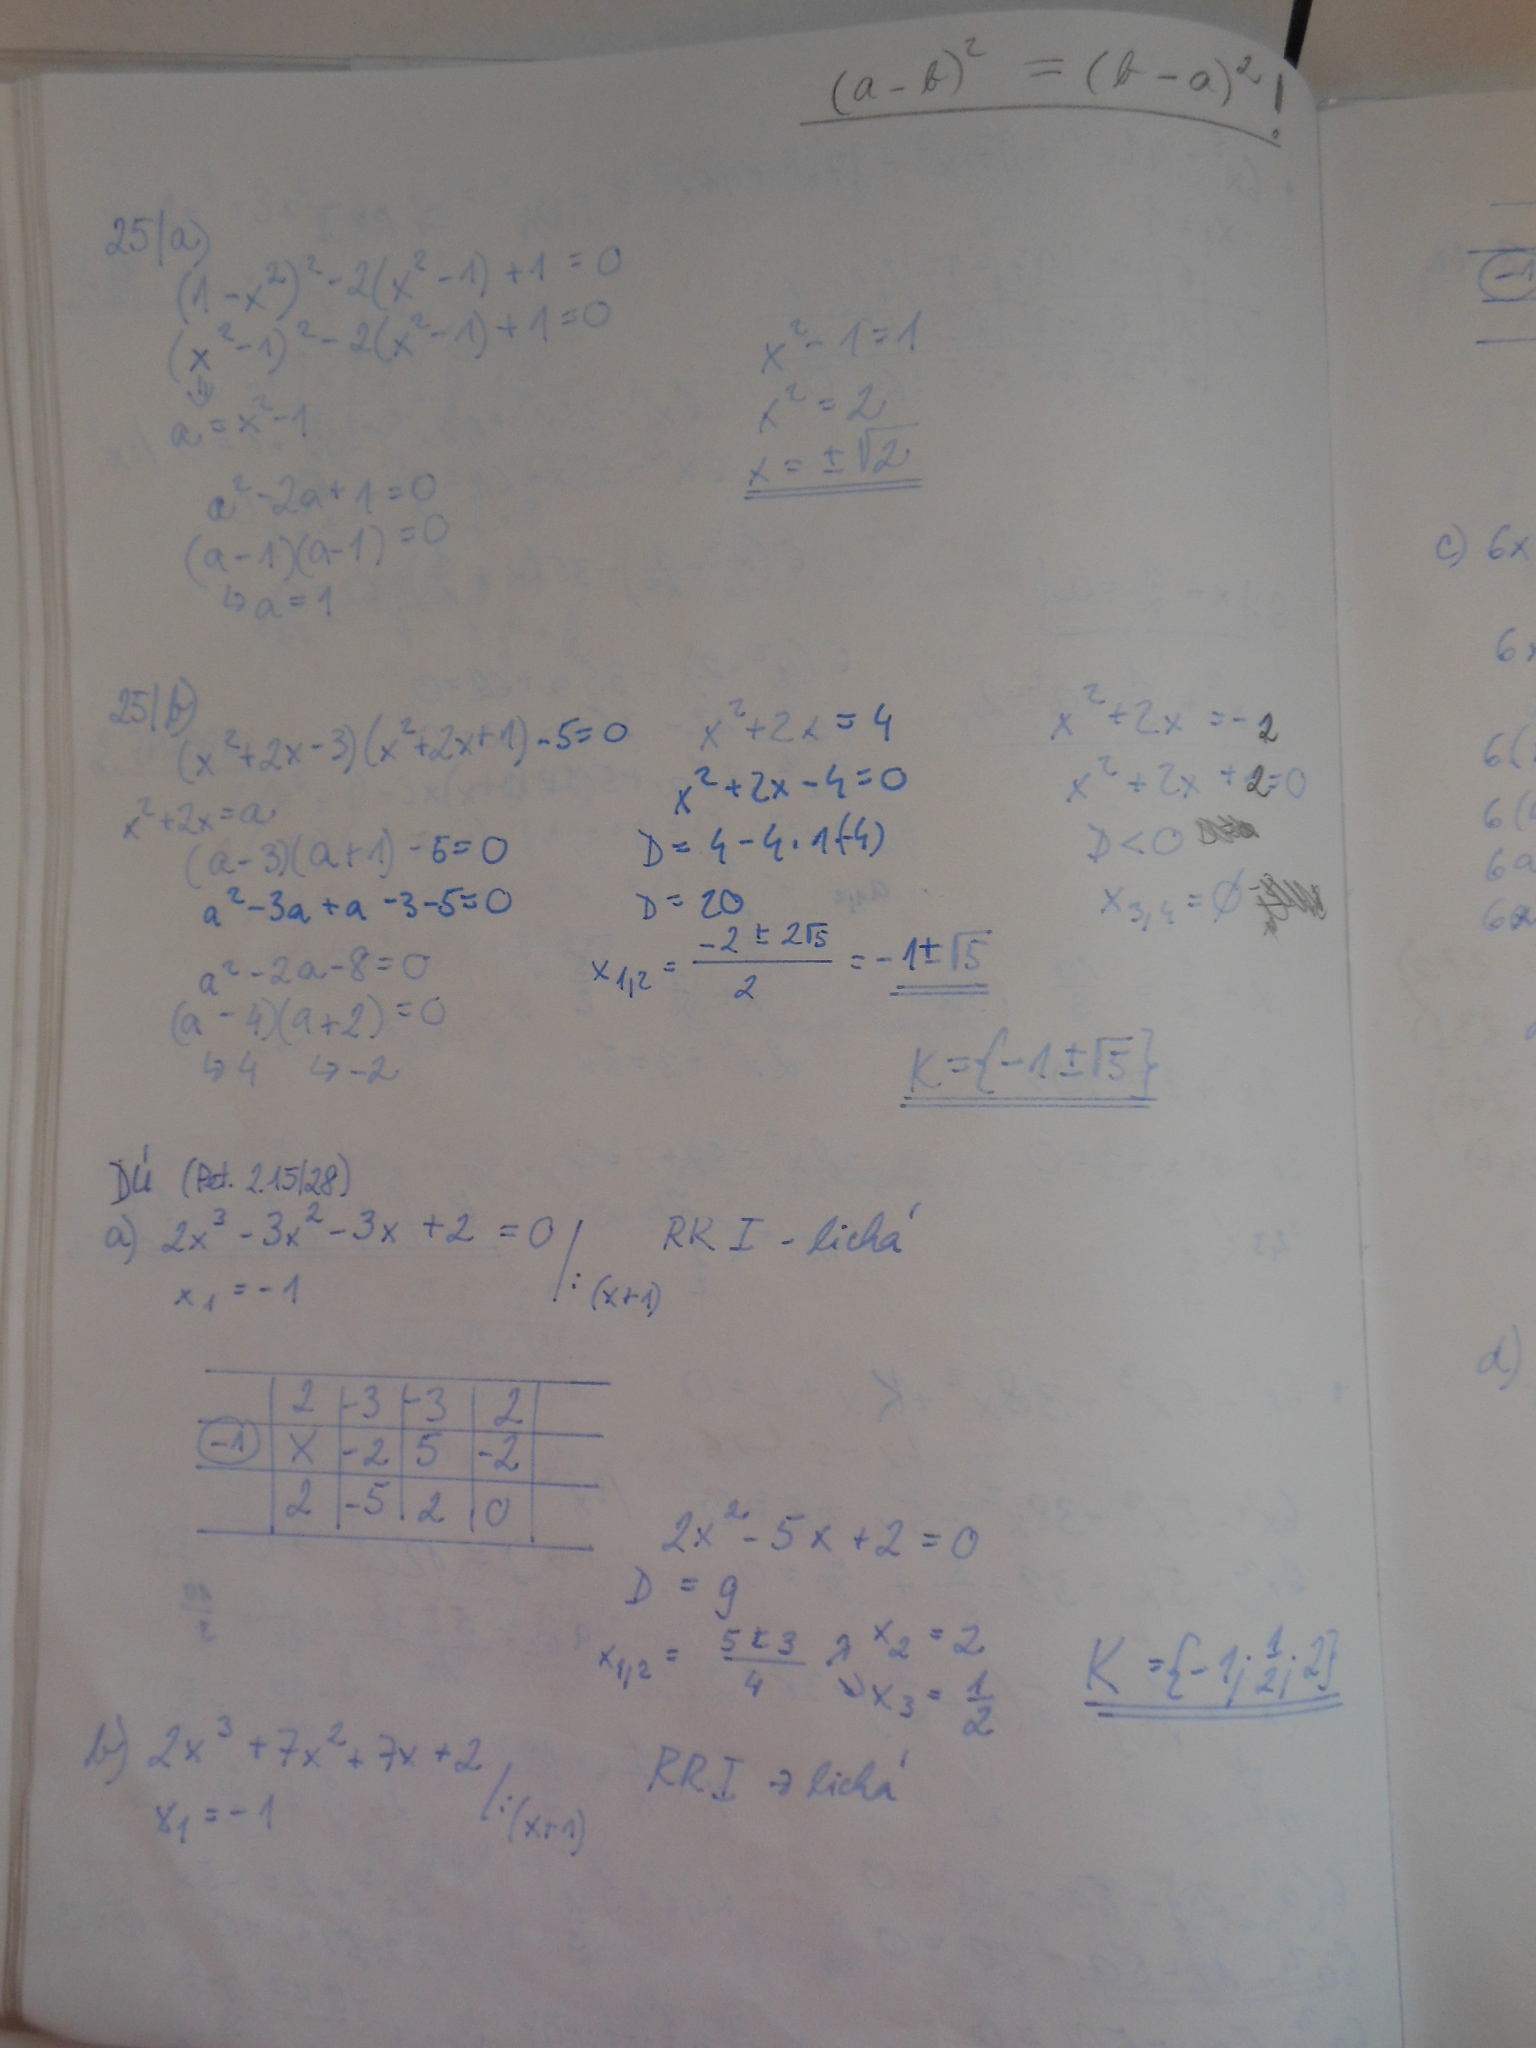 (a-b)² = (b-a)²!
25/a)
(1-x²)² -2(x²-1)+1=0
(x²-1)² -2(x²-1)+1=0
a=x²-1
a²-2a+1=0
(a-1)(a-1)=0
↳a=1
x²-1=1
x²=2
x=±√2
25/b)
(x²+2x-3)(x²+2x+1)-5=0
x²+2x=a
(a-3)(a+1)-5=0
a²-3a+a-3-5=0
a²-2a-8=0
(a-4)(a+2)=0
↳4 ↳-2
x²+2x=4
x²+2x-4=0
D=4-4·1(-4)
D=20
x1,2 = (-2±2√5)/2 = -1±√5
x²+2x=-2
x²+2x+2=0
D<0
x3,4=∅
K={-1±√5}
DÚ (Pet. 2.15/28)
a) 2x³-3x²-3x+2=0 /:(x+1) RR I - lichá
x1=-1
2 -3 -3 2
-1 X -2 5 -2
2 -5 2 0
2x²-5x+2=0
D=9
x1,2 = (5±3)/4 ↗ x2=2
↘ x3=1/2
K={-1; 1/2; 2}
b) 2x³+7x²+7x+2 /:(x+1) RR I → lichá
x1=-1
-1
c) 6x
6x
6(
6(
6a
6a
d)